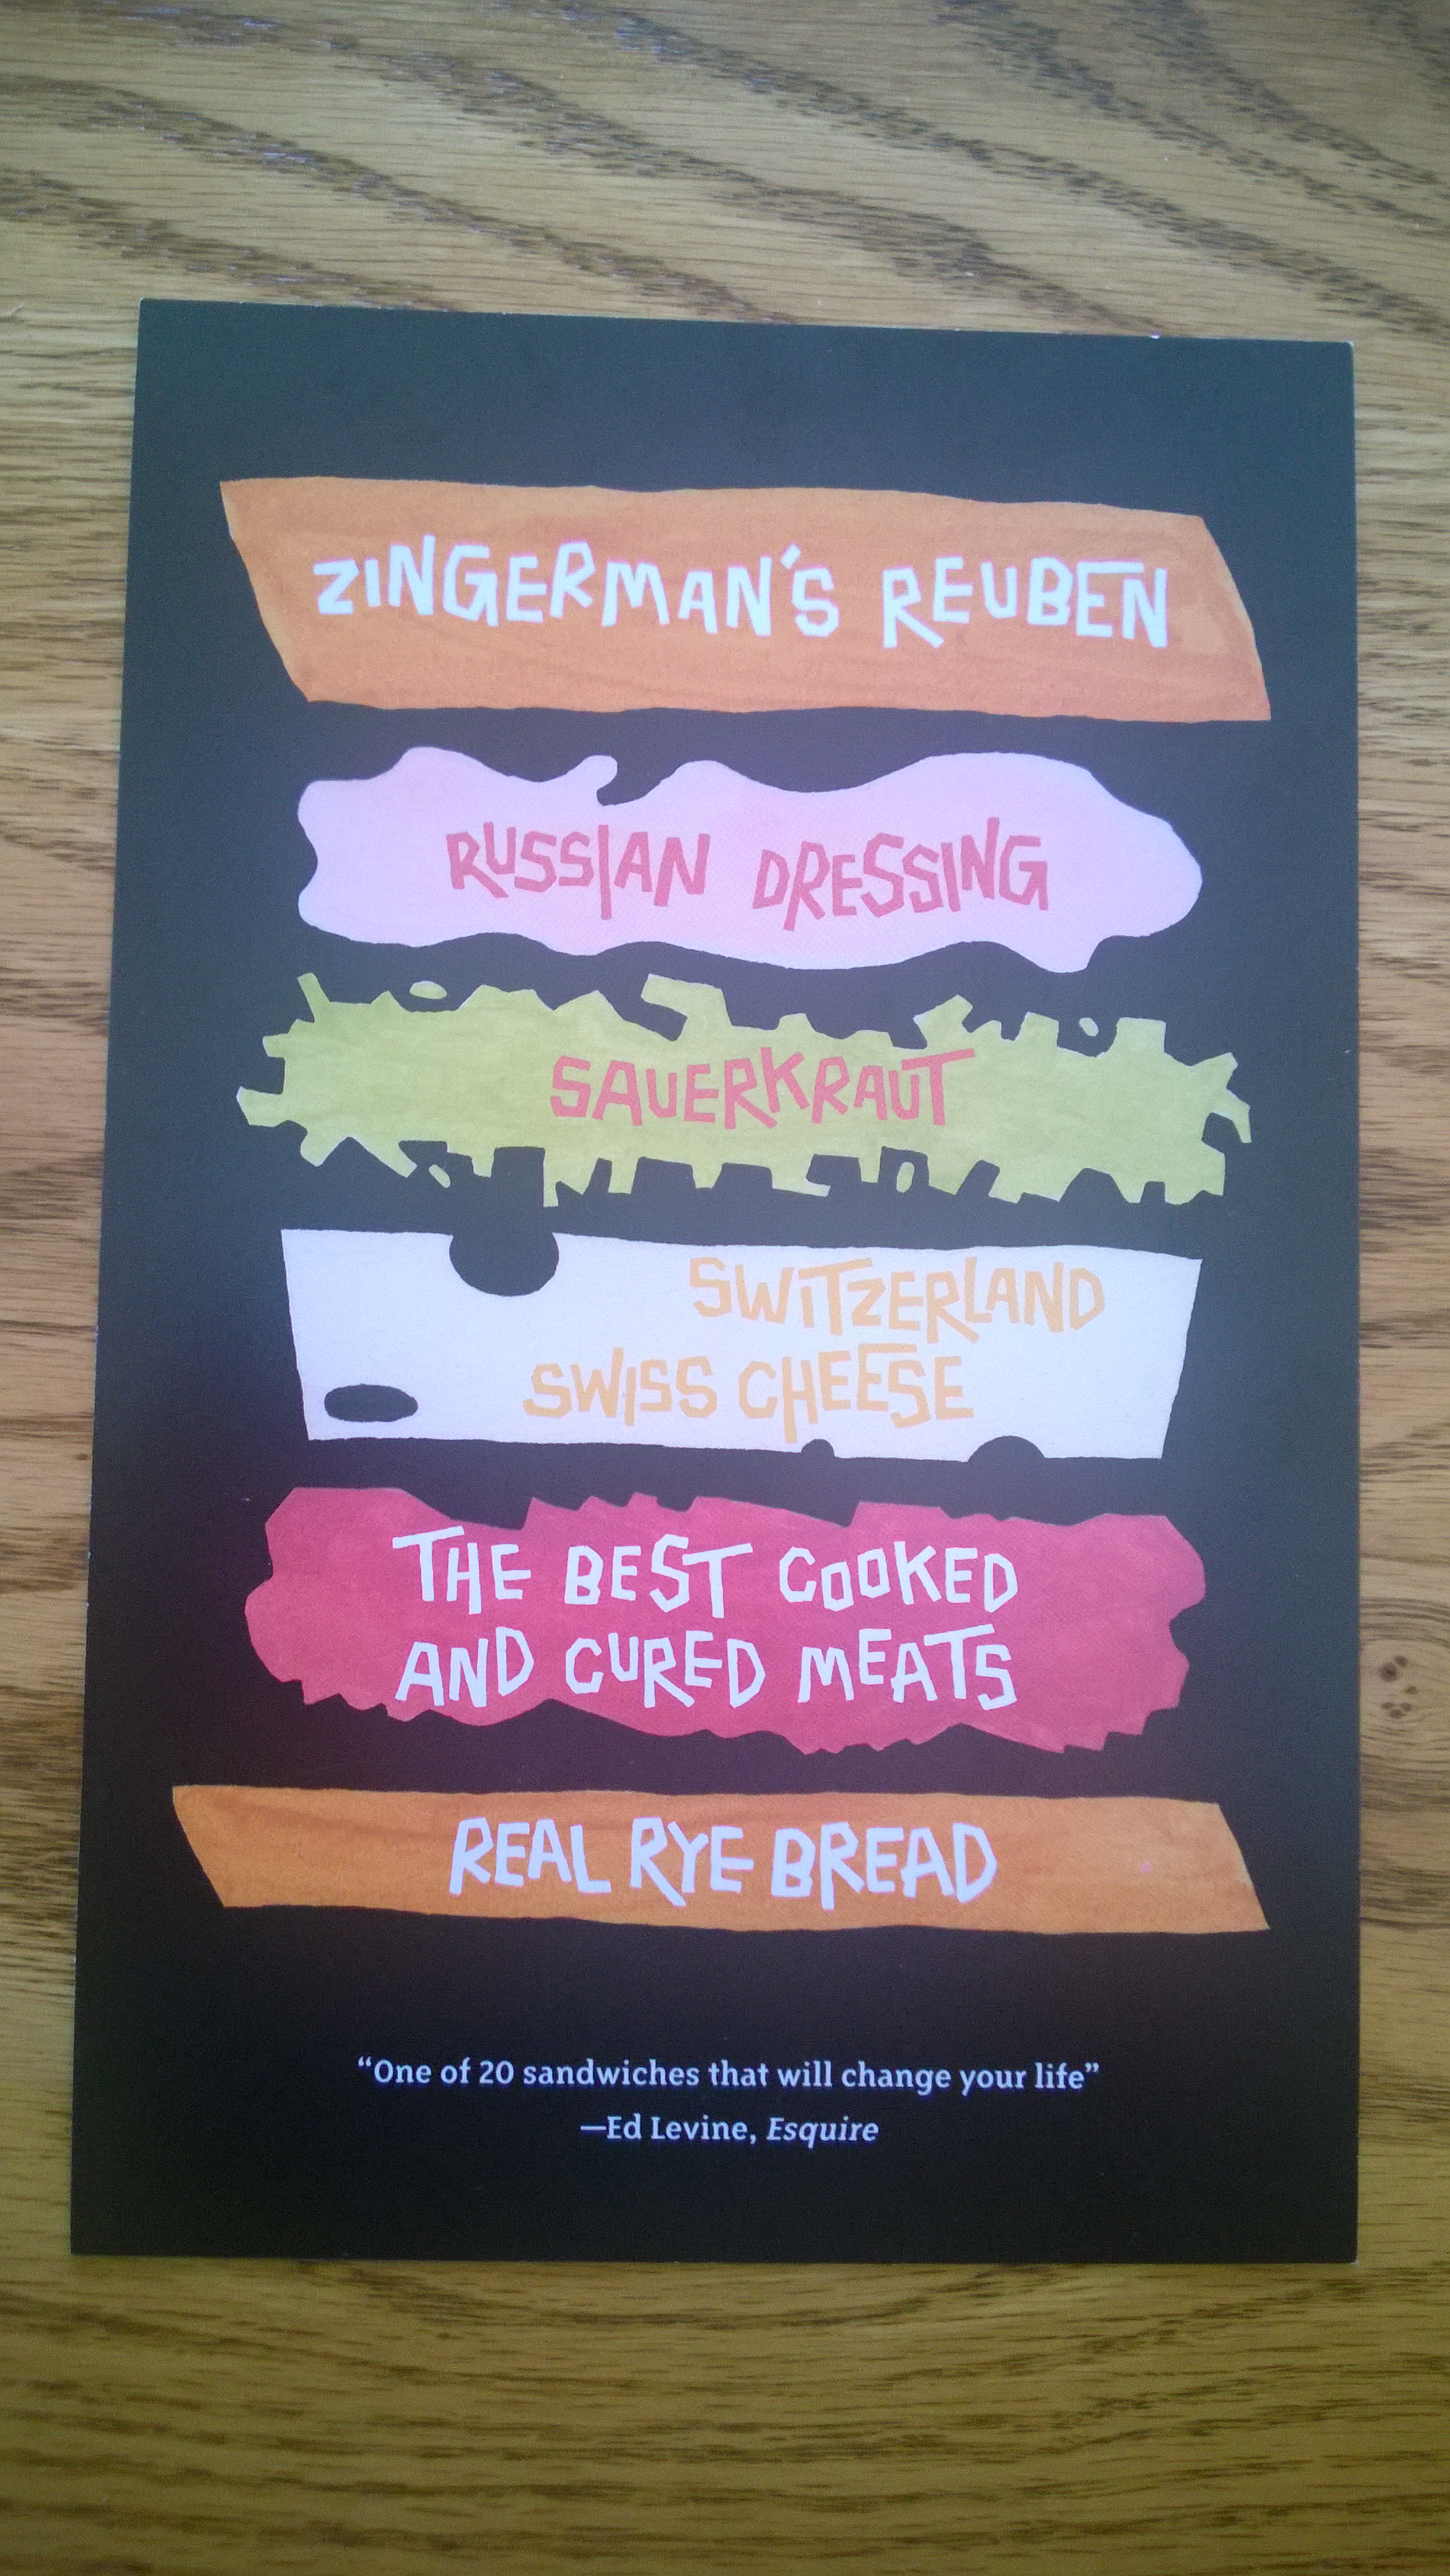 ZINGERMAN'S REUBEN
RUSSIAN DRESSING
SAUERKRAUT
SWITZERLAND
SWISS CHEESE
THE BEST COOKED
AND CURED MEATS
REAL RYE BREAD
“One of 20 sandwiches that will change your life”
—Ed Levine, Esquire